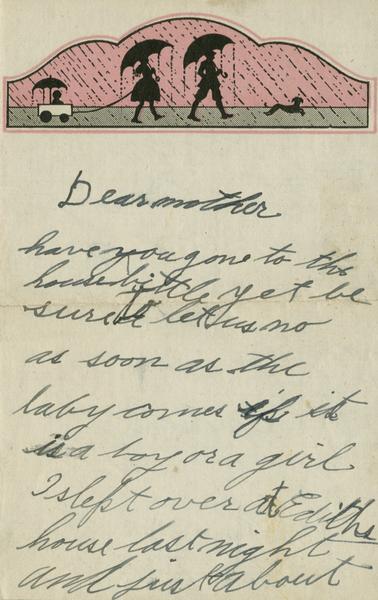 Dear mother
have you gone to the
house yet be
sure & let us no
as soon as the
baby comes if it
is a boy or a girl
I slept over at Ediths
house last night
and just about